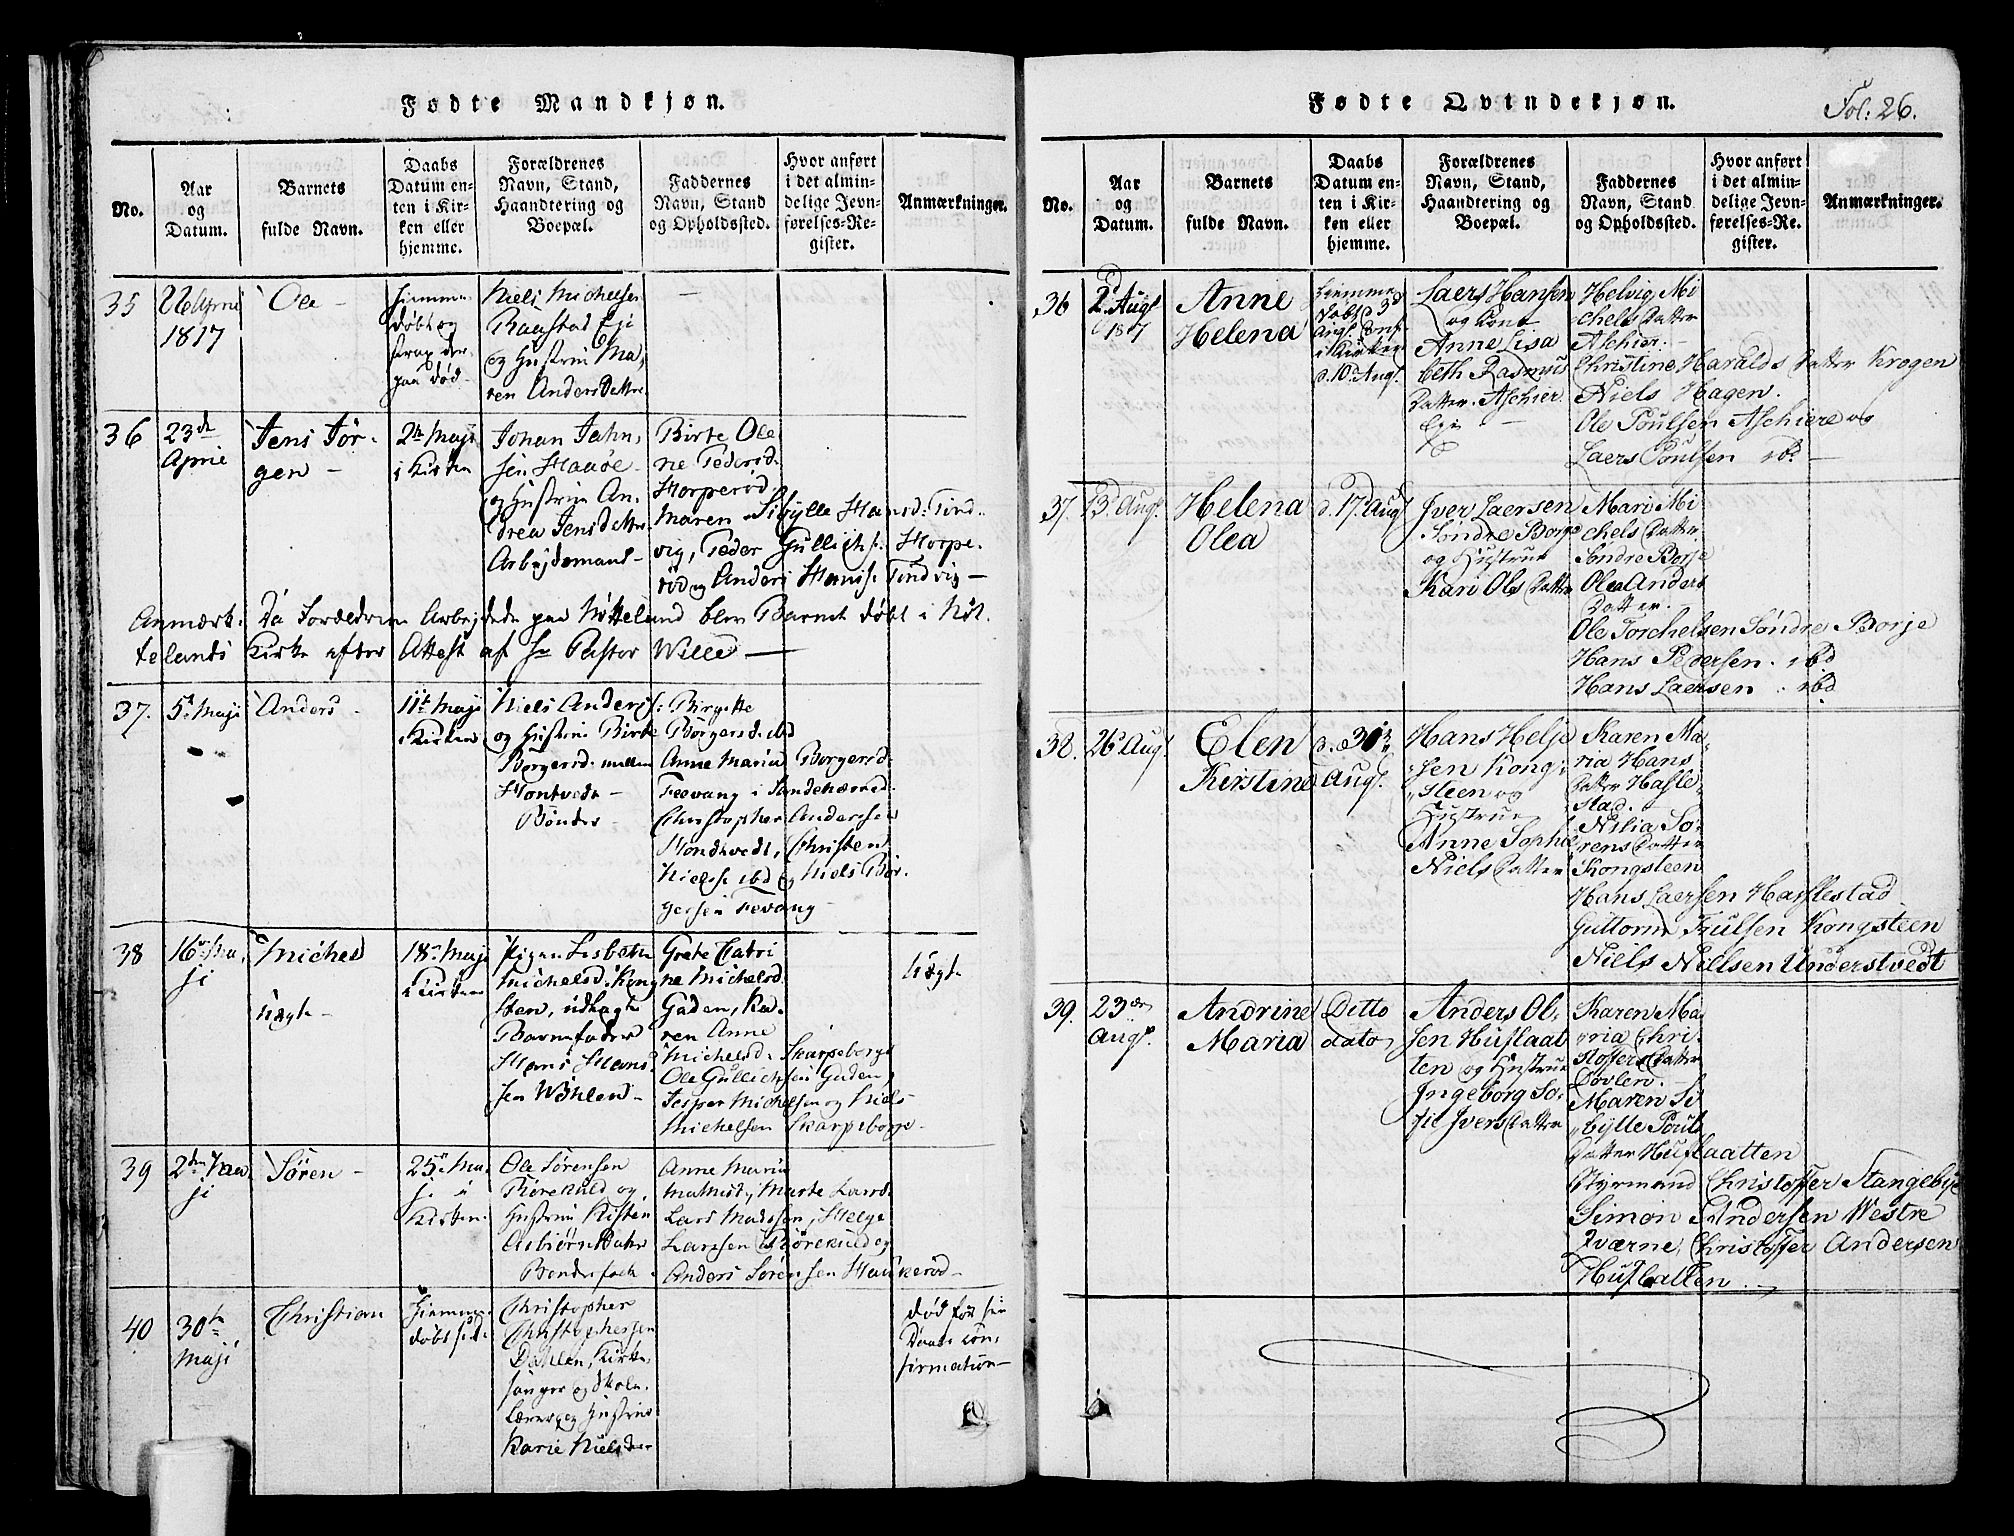 Fødte Mandkjøn.
No.
Aar
og
Datum.
Barnets
fulde Navn.
Daabs
Datum en-
ten i Kir-
ken eller
hjemme.
Forældrenes
Navn, Stand,
Haandtering og
Boepæl.
Faddernes
Navn, Stand
og Opholdssted.
Hvor anført
i det almin-
delige Jevn-
førelses-Re-
gister.
Anmærkninger.
35
1817
Ole -
hiemme
døbt og
strax der
paa død -
Niels Michelsen
Raastad Eje
og Hustrue Ma,
ren Anders Datter
36
23de
April
Jens Jør-
gen -
2n Maji
i Kirken
Johan Jahn,
sen Haaøe -
og Hustrue An,
drea Jensdatter
Arbejdsmand -
Birte Ole
ne Pedersd.
Horperød.
Maren Sibylle Hansd: Tind-
vig, Peder Gullichs. Horpe-
rød og Anders Hanss. Tindvig -
Anmærk: Da Forældrene Arbejdede paa Nøtteland blev Barnet døbt i Nøt-
telands Kirke efter Attest af Hr Pastor Wille -
37.
5t Maji
Anders -
11te Maji
i Kirken
Niels Anders:
og Hustrue Birte
Borgersd. mellem
Hontvedt -
Bønder -
Birgette
Børgersd. ibd
Anne Maria Borgersd.
Fevang i Sandeherred.
Christopher Andersen
Hondtvedt, Christen
Nielss. ibd og Niels Bør-
gersen Fevang -
38
16n Ma,
ji
Michel
Uægte -
18n Maji
i Kirken
Pigen Lisbeth
Michelsd. Kong
steen, udlagte
Barnefader
Hans Hans,
sen Wøhlen -
Grete Catri
ne Michelsd
Gaden, Ka-
ren Anne
Michelsd. Skarpeborge
Ole Gullichsen Gaden,
Jesper Michelsen og Niels
Michelsen Skarpeborge -
Uægte
39
ji
Søren -
25n Ma,
ji i
Kirken.
Ole Sørensen
Rørekuld og
Hustrue Kisten
Asbiørns Datter
Bondefolk -
Anne Maria
Madsd., Marte Larsd.
Lars Madssøn, Helge
Larssen Rørekuld og
Anders Sørensen Haukerød -
40
30te
Maji
Christian
hiemme
døbt
Christopher
Christophersen
Dahlen, Kirke,
sanger og Skole,
Lærer og Hustrue
Karie Nielsdatter
død før sin
Daabs Con,
firmation -
Fødte Qvindekjøn.
Fol: 26.
No.
Aar
og
Datum.
Barnets
fulde Navn.
Daabs
Datum en-
ten i Kir-
ken eller
hjemme.
Forældrenes
Navn, Stand,
Haandtering og
Boepæl.
Faddernes
Navn, Stand
og Opholdssted.
Hvor anført
i det almin-
delige Jevn-
førelses-Re-
gister.
Anmærkninger.
36
2d Augs
1817
Anne
Helena
hiemme
døbt d 3d
Augs. Conf.
i Kirken
d. 10d Augs.
Laers Hansen
og Kone
Anne Lisa
beth Rasmus
Datter. Aschier
Eje -
Helvig Mi
chels Datter
Aschier. -
Christine Haralds Datter Krogen
Niels Hagen.
Ole Poulsen Aschiere og
Laers Poulsen ibd -
37.
13d Augs.
Helena
Olea
d. 17d Augs
Iver Laersen
Søndre Borge
og Hustrue
Kari Ols Datter
Mari Mi
chels Datter
Søndre Borje
Olea Anders
Datter.
Ole Torchelsen Søndre Borje
Hans Pedersen. ibd
Hans Laersen. ibd
38.
26d Augs.
Elen
Kirstine
d. 30te
Augs.
Hans Helje
sen Kong,
steen og
Hustrue
Anne Sophie
Niels Datter
Karen Ma,
ria Hans
Datter Hasle-
stad.
Nilia Sø,
rens Datter
Kongsteen
Hans Laersen Haslestad
Guttorm Trulsen Kongsteen
Niels Nielsen Understvedt
39.
23de
Augs.
Andrine
Maria
Ditto
dato
Anders Ol,
sen Huslaat
ten og Hustrue
Ingeborg So,
fie Ivers Datter
Karen Ma,
ria Chri-
stoffers Datter
Døvlen. -
Maren Si
bylle Pouls
Datter Huslaatten
Styrmand Christoffer Stangebye
Simon Andersen Westre
Qværne, Christoffer Andersen
Huslatten. -